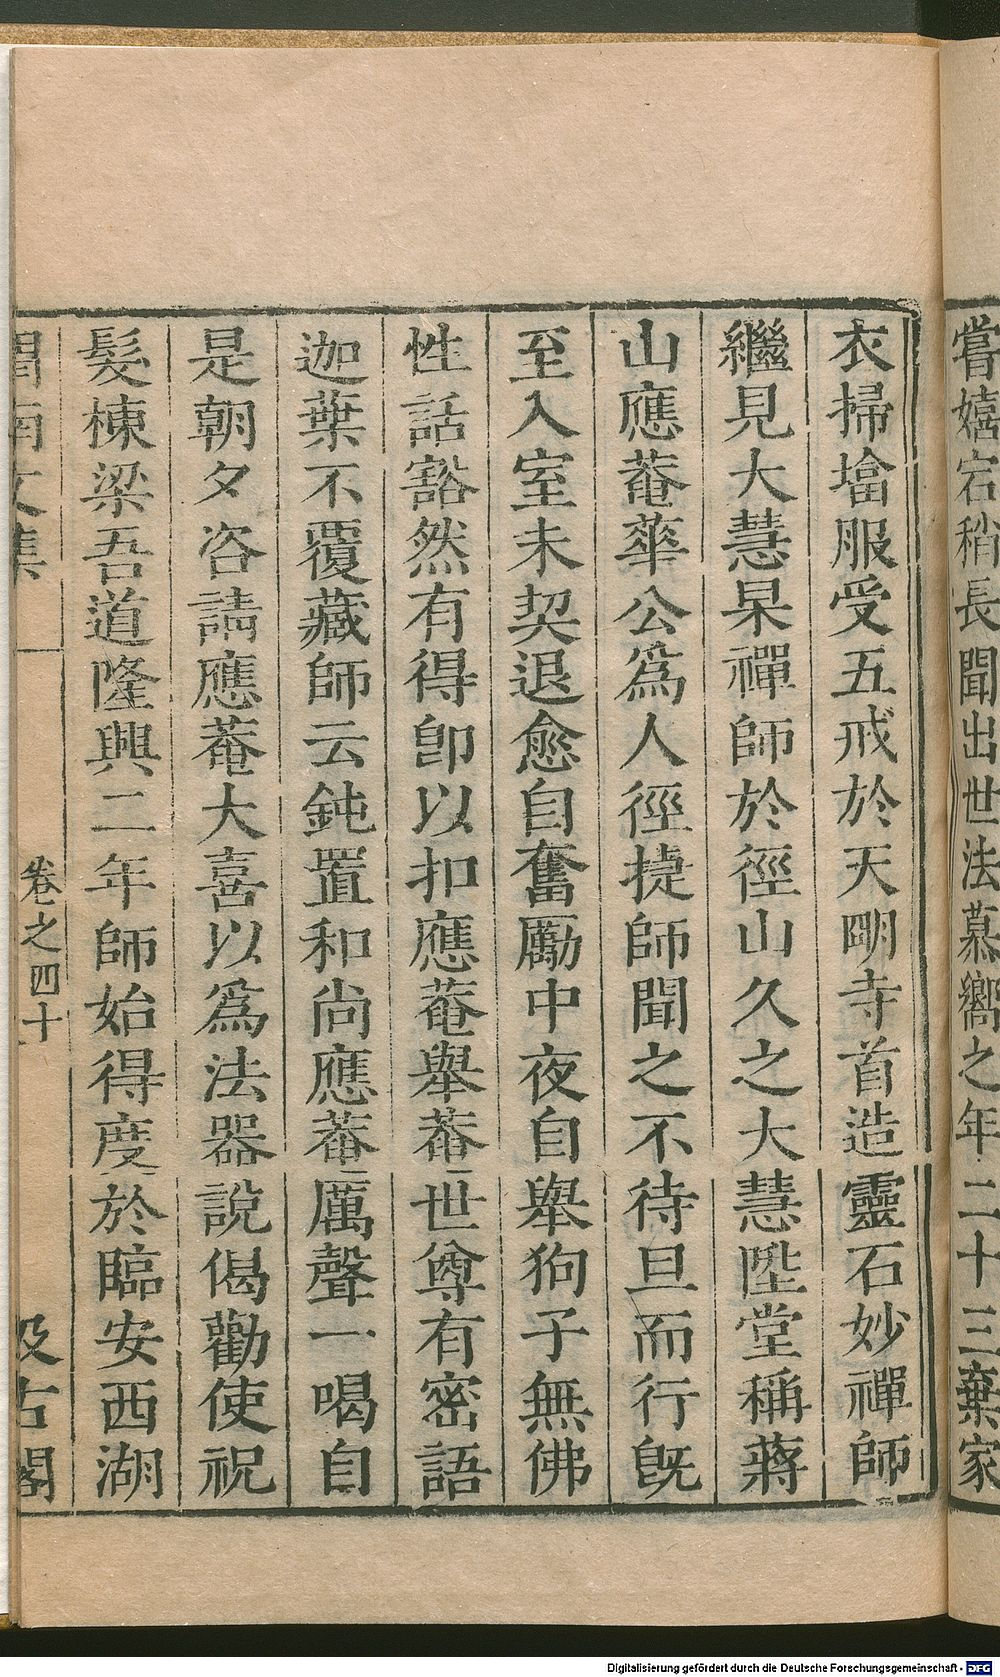 嘗嬉宕稍長聞出世法慕嚮之年二十三棄家
衣掃墖服受五戒於天明寺首造靈石妙禪師
繼見大慧杲禪師於徑山久之大慧陞堂稱蔣
山應菴華公爲人徑捷師聞之不待旦而行旣
至入室未契退愈自奮厲中夜自舉狗子無佛
性話豁然有得卽以扣應菴舉菴世尊有密語
迦葉不覆藏師云鈍置和尚應菴厲聲一喝自
是朝夕咨請應菴大喜以爲法器說偈勸使祝
髮棟梁吾道隆興二年師始得度於臨安西湖
渭南文集 卷之四十 汲古閣
Digitalisierung gefördert durch die Deutsche Forschungsgemeinschaft - DFG